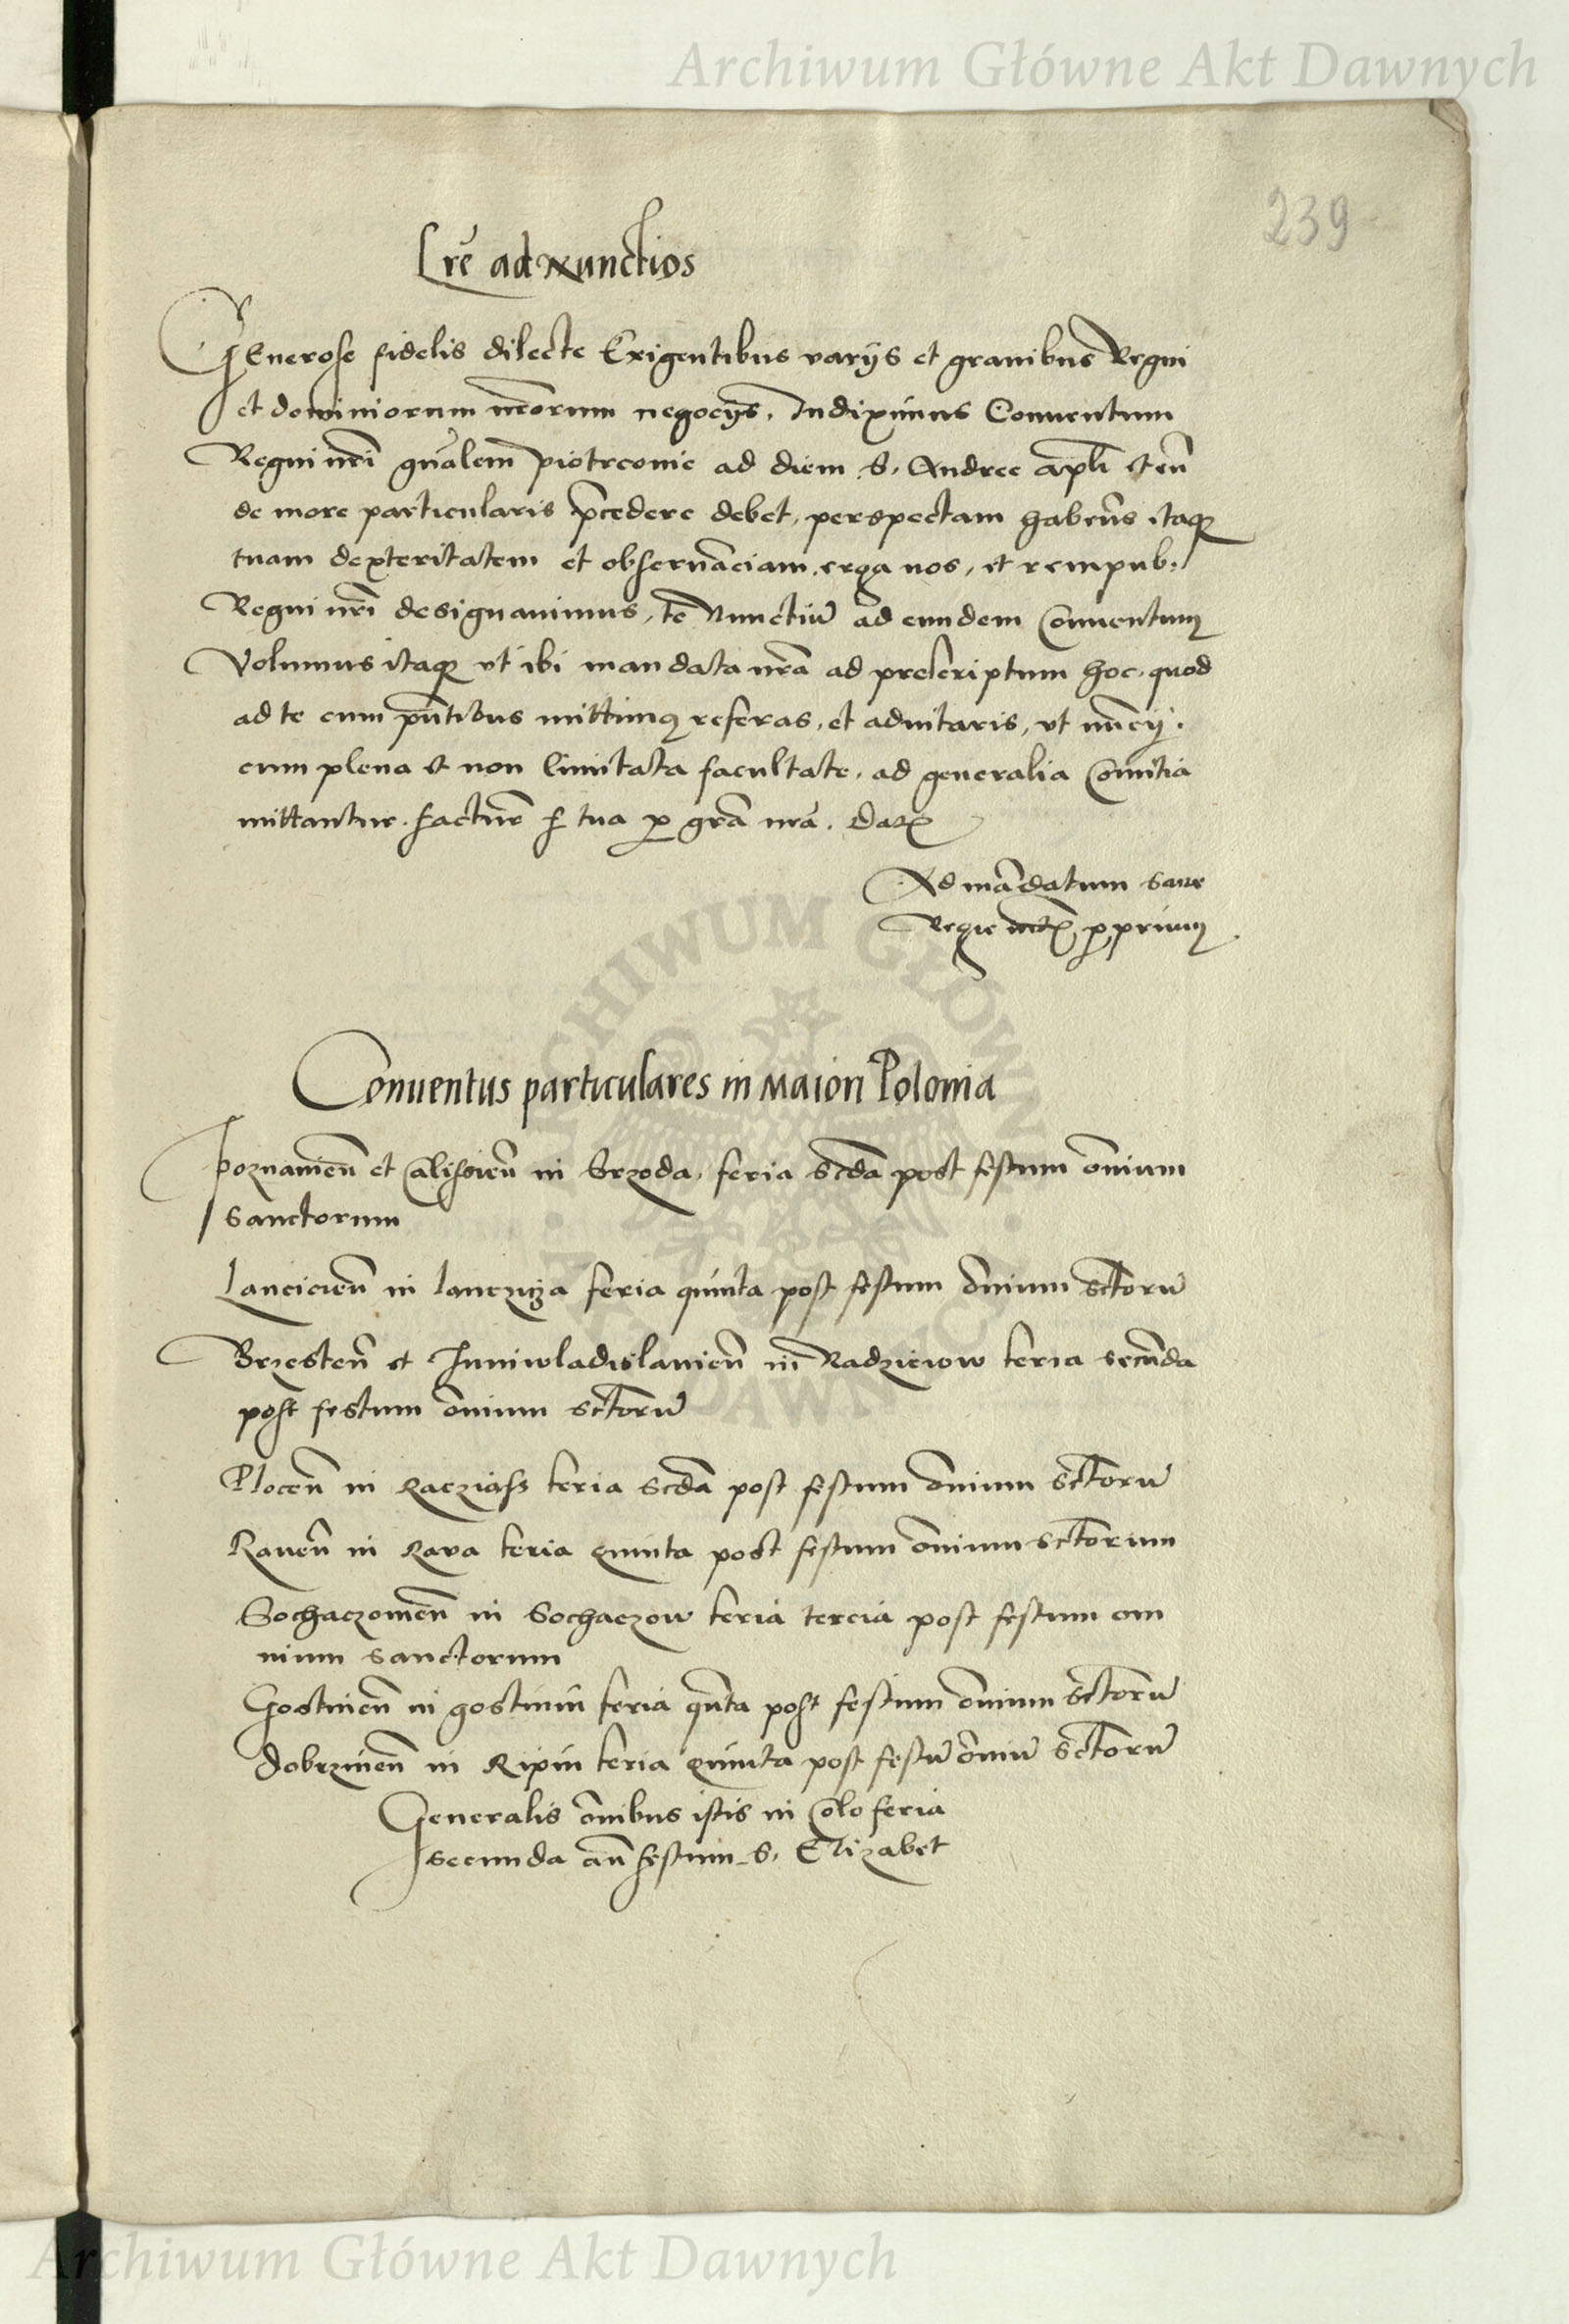 Archiwum Główne Akt Dawnych
239
Lrẽ ad Nunctios
GEnerose fidelis dilecte Exigentibus varijs et grauibus Regni
et dominiorum nrõrum negocijs, Indiximus Conuentum
Regni nrĩ gnãlem piotrconie ad diem S. Andree apl̃i et cũ
de more particularis p̃cedere debet, perspectam habentes itaq₃
tuam dexteritatem et obseruãciam erga nos, et rempub:
Regni nrĩ designauimus, te Nunctiũ ad eundem Conuentum
Volumus itaq₃ vt ibi mandata nrã ad prescriptum hoc, quod
ad te cum pñtibus mittimus referas, et aduitaris, vt nũcij
cum plena et non limitata facultate, ad generalia Comitia
mittantur. facture f tua p grã nrã. Dat
Ad mãdatum sacre
Regie mtis p prium
Conuentus particulares in Maiori Polonia
poznanieñ et Calisieñ in Srzoda, feria scdã post festum õmnium
sanctorum
Lancicieñ in lanczicza feria quinta post festum õmnium sctõrũ
Brzesteñ et Iuniwladislauieñ in Radzieiow feria secũda
post festum õmnium sctõrũ
Ploceñ in Racziass feria scdã post festum õmnium sctõrũ
Raueñ in Rava feria quinta post festum õmnium sctõrum
Sochaczouieñ in Sochaczow feria tercia post festum om
nium sanctorum
Gostinieñ in gostinin feria qũta post festum õmnium sctõrũ
dobrzineñ in Ripin feria quinta post festũ õmniũ sctõrũ
Generalis õmnibus istis in Colo feria
secunda añ festum S. Elizabet
ARCHIWUM GŁÓWNE AKT DAWNYCH
Archiwum Główne Akt Dawnych